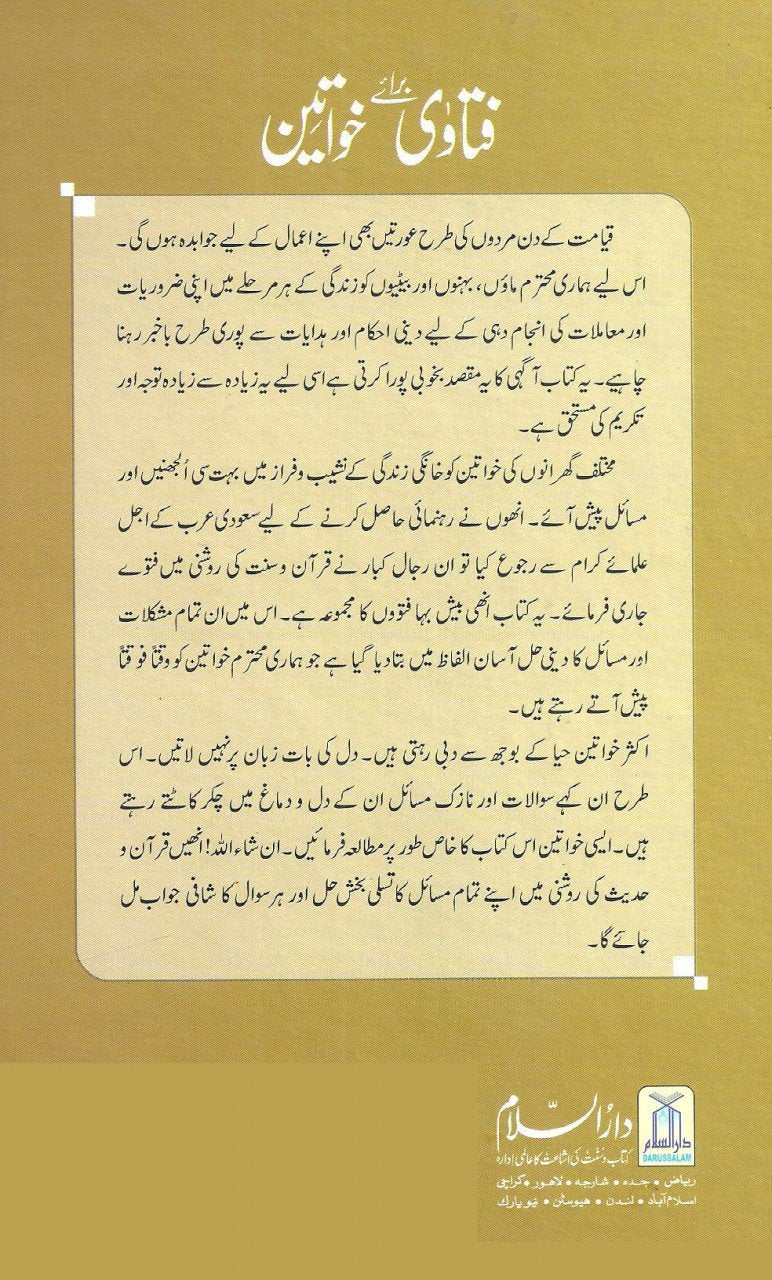 فتاویٰ برائے خواتین
قیامت کے دن مردوں کی طرح عورتیں بھی اپنے اعمال کے لیے جوابدہ ہوں گی۔
اس لیے ہماری محترم ماؤں، بہنوں اور بیٹیوں کو زندگی کے ہر مرحلے میں اپنی ضروریات
اور معاملات کی انجام دہی کے لیے دینی احکام اور ہدایات سے پوری طرح باخبر رہنا
چاہیے۔ یہ کتاب آگہی کا یہ مقصد بخوبی پورا کرتی ہے اسی لیے یہ زیادہ سے زیادہ توجہ اور
تکریم کی مستحق ہے۔
مختلف گھرانوں کی خواتین کو خانگی زندگی کے نشیب و فراز میں بہت سی اُلجھنیں اور
مسائل پیش آئے۔ انھوں نے رہنمائی حاصل کرنے کے لیے سعودی عرب کے اجل
علمائے کرام سے رجوع کیا تو ان رجال کبار نے قرآن و سنت کی روشنی میں فتوے
جاری فرمائے۔ یہ کتاب انھی بیش بہا فتووں کا مجموعہ ہے۔ اس میں ان تمام مشکلات
اور مسائل کا دینی حل آسان الفاظ میں بتا دیا گیا ہے جو ہماری محترم خواتین کو وقتاً فوقتاً
پیش آتے رہتے ہیں۔
اکثر خواتین حیا کے بوجھ سے دبی رہتی ہیں۔ دل کی بات زبان پر نہیں لاتیں۔ اس
طرح ان کہے سوالات اور نازک مسائل ان کے دل و دماغ میں چکر کاٹتے رہتے
ہیں۔ ایسی خواتین اس کتاب کا خاص طور پر مطالعہ فرمائیں۔ ان شاء اللہ! انھیں قرآن و
حدیث کی روشنی میں اپنے تمام مسائل کا تسلی بخش حل اور ہر سوال کا شافی جواب مل
جائے گا۔
دارالسلام
DARUSSALAM
دارُالسّلام
کتاب و سنت کی اشاعت کا عالمی ادارہ
ریاض • جدہ • شارجہ • لاہور • کراچی
اسلام آباد • لندن • ہیوسٹن • نیویارک